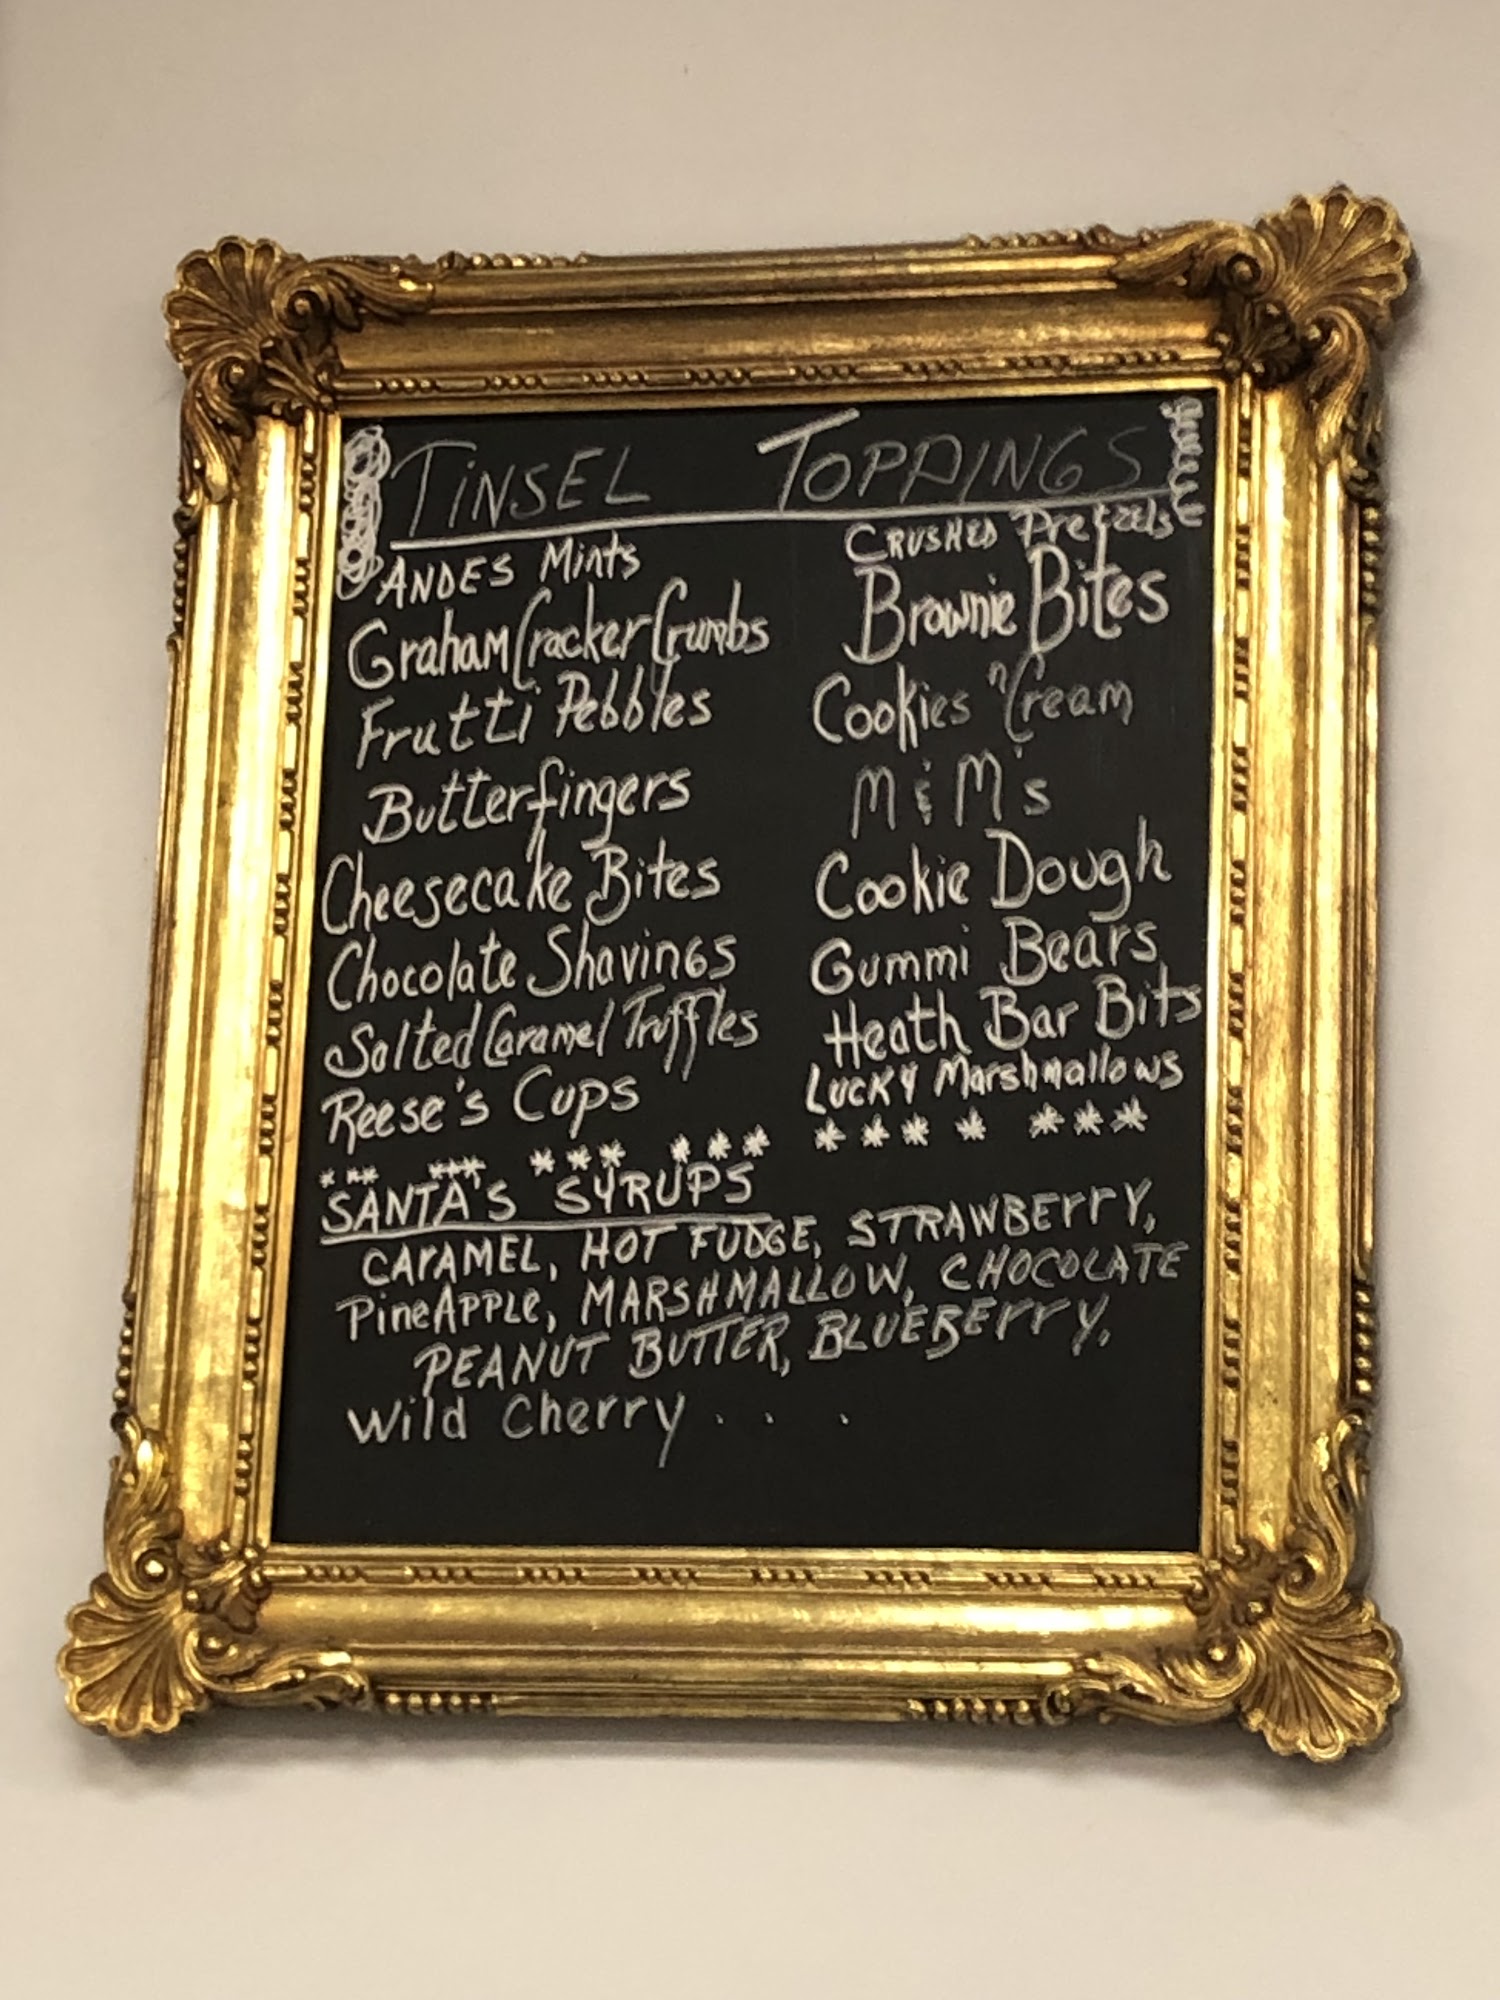 TINSEL TOPPINGS
ANDES Mints
Graham Cracker Crumbs
Frutti Pebbles
Butterfingers
Cheesecake Bites
Chocolate Shavings
Salted Caramel Truffles
Reese's Cups
CRUSHED Pretzels
Brownie Bites
Cookies 'n Cream
M & M's
Cookie Dough
Gummi Bears
Heath Bar Bits
LUCKY Marshmallows
*** *** *** *** **** ***
SANTA'S SYRUPS
CARAMEL, HOT FUDGE, STRAWBERRY,
PineAPPLe, MARSHMALLOW, CHOCOLATE
PEANUT BUTTER, BLUEBERRY,
Wild Cherry . . .